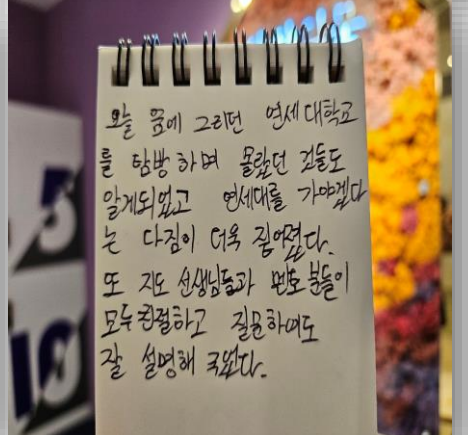 오늘 꿈에 그리던 연세대학교
를 탐방하며 몰랐던 것들도
알게되었고 연세대를 가야겠다
는 다짐이 더욱 짙어졌다.
또 지도 선생님들과 멘토분들이
모두친절하고 질문하여도
잘 설명해 주셨다.
5
10